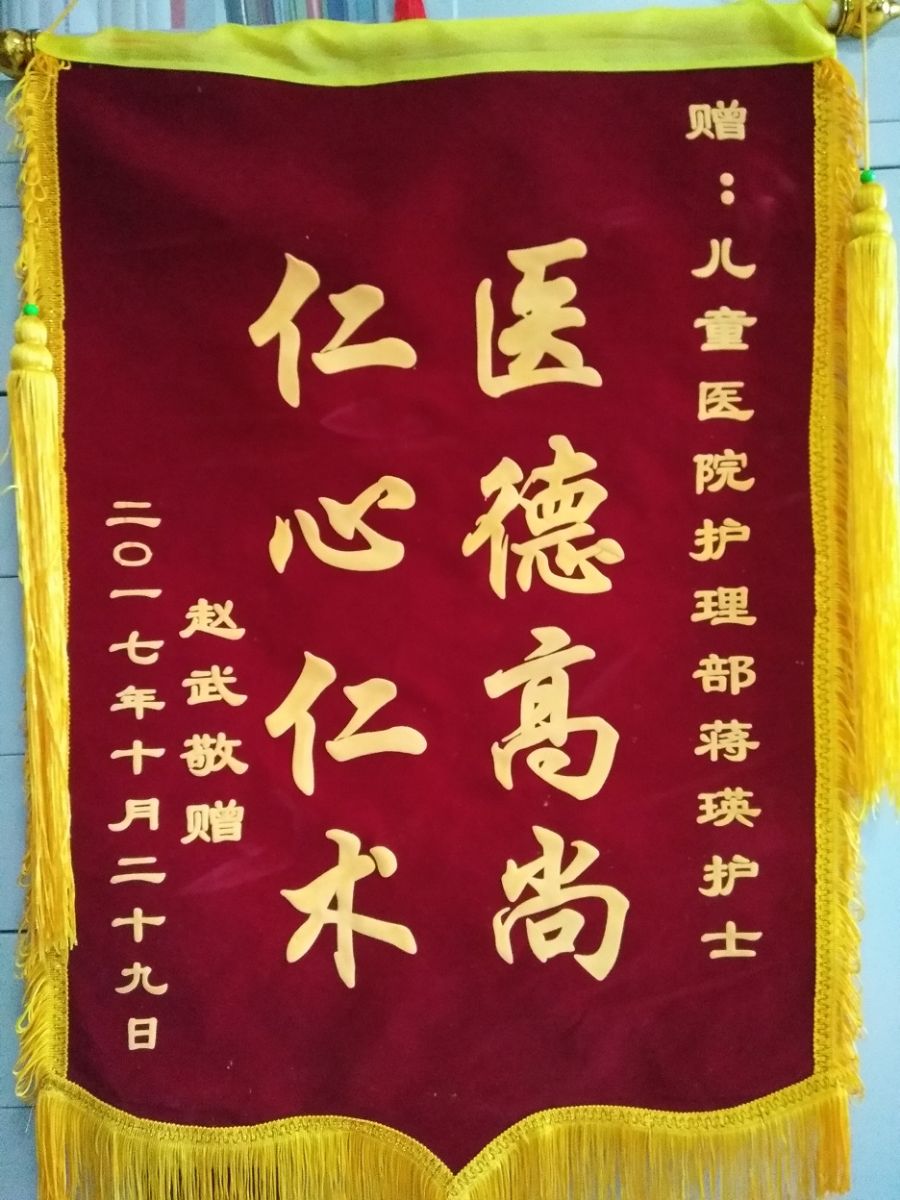 赠：儿童医院护理部蒋瑛护士
医德高尚
仁心仁术
赵武敬赠
二〇一七年十月二十九日